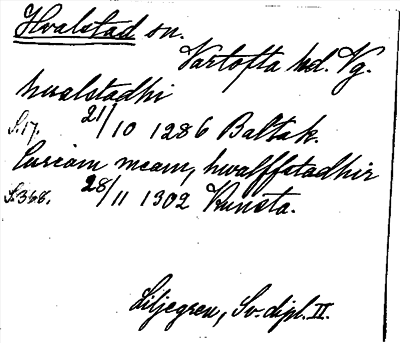 Hvalstad sn.
Vartofta hd. Vg.
hwalstadhi
S. 17. 21/10 1286 Baltak.
Curiam meam, hwalffstadhir
S. 368. 28/11 1302 Runsta.
Liljegren, Sv. dipl. II.